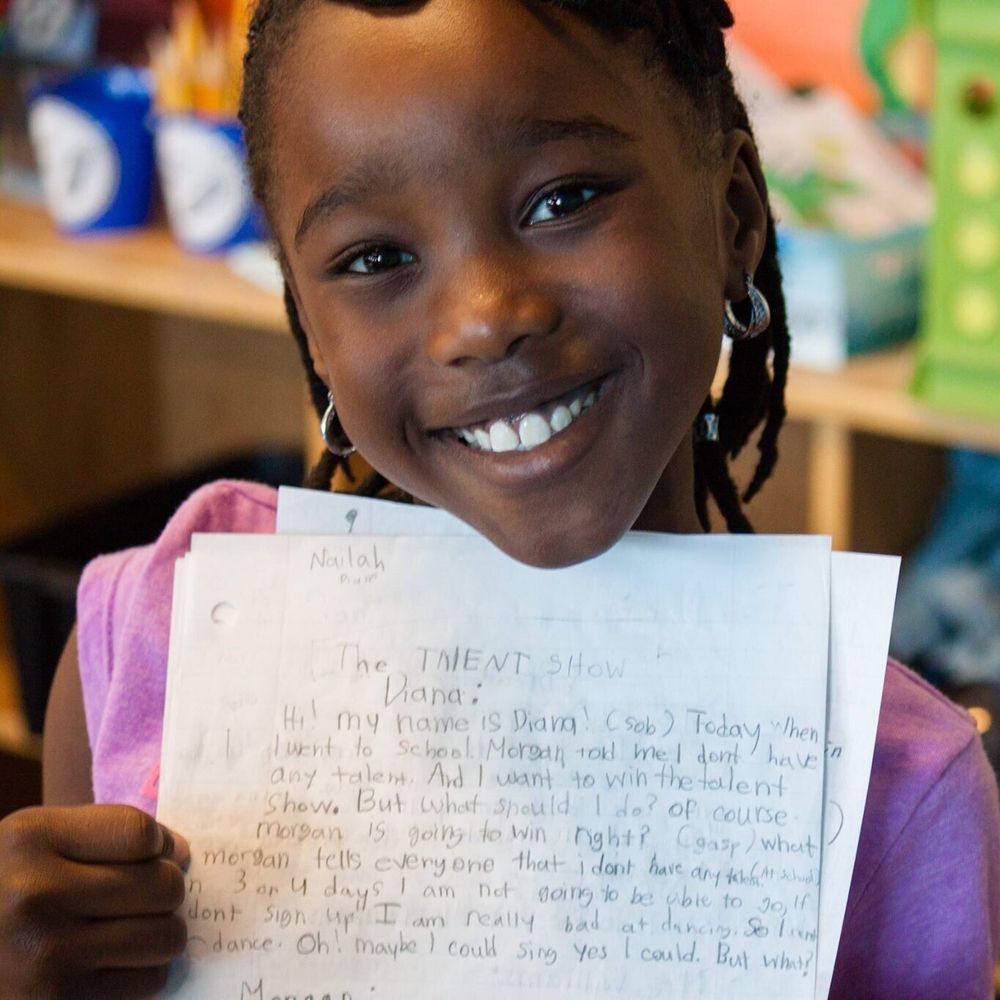 9
Nailah
The TALENT SHOW
Diana:
Hi! my name is Diana! (sob) Today when
I went to school Morgan told me I dont have
any talent. And I want to win the talent
Show. But what should I do? of course
morgan is going to win right? (gasp) what
morgan tells everyone that i dont have any talent. (At school)
n 3 or 4 days I am not going to be able to go, if
dont sign up" I am really bad at dancing. So I
dance. Oh! maybe I could sing yes I could. But what?
Morgan: